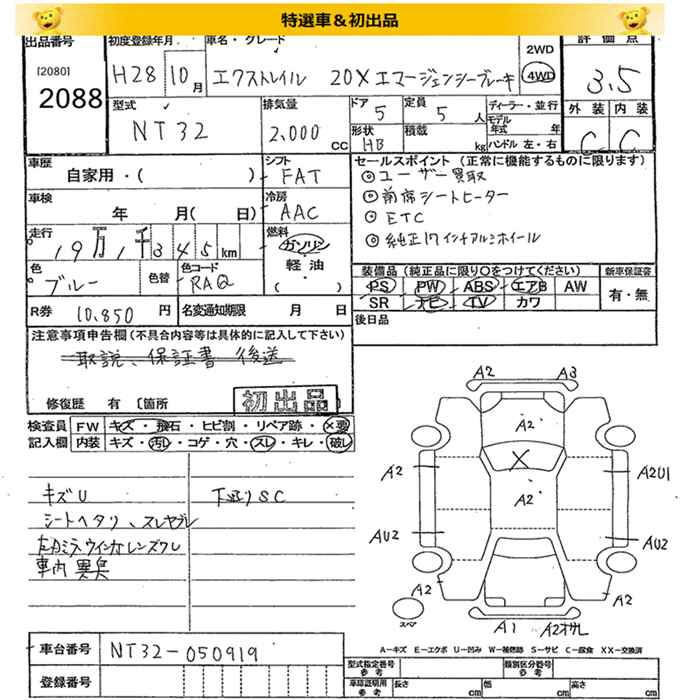 特選車＆初出品
出品番号 初度登録年月 車名・グレード 2WD 評価点
[2080] H28 10月 エクストレイル 20X エマージェンシーブレーキ 4WD 3.5
2088
型式 排気量 ドア 定員 ディーラー・並行 外装 内装
NT32 2,000 CC 5 5人 モデル年式 年 C C
形状 HB 積載 kg ハンドル 左・右
車歴 シフト セールスポイント (正常に機能するものに限ります)
自家用・( ) FAT ◎ユーザー買取
車検 冷房 ◎前席シートヒーター
年 月( 日) AAC ◎ETC
走行 燃料 ◎純正17インチアルミホイール
19万1千345km ガソリン
軽油
色 色替 色コード 装備品 (純正品に限り〇をつけてください) 新車保証書
ブルー RAQ PS PW ABS エアB AW 有・無
SR ナビ TV カワ
R券 10,850円 名変通知期限 月 日 後日品
注意事項申告欄(不具合内容等は具体的に記入して下さい)
取説、保証書 後送
修復歴 有 〔箇所 初出品
検査員 FW キズ・飛石・ヒビ割・リペア跡・×要
記入欄 内装 キズ・汚レ・コゲ・穴・スレ・キレ・破レ
キズU 下廻りSC
シートヘタリ、スレヤブレ
左Aミラウインカレンズワレ
車内異臭
A2 A3
A2
A2 A2U1
A2
AU2 AU2
A2 A2
スペア A1 A2オサレ
A－キズ E－エクボ U－凹み W－補修跡 S－サビ C－腐食 XX－交換済
車台番号 NT32-050919
登録番号
型式指定番号 参考 類別区分番号 参考
車庫証明用 参考 長さ cm 幅 cm 高さ cm